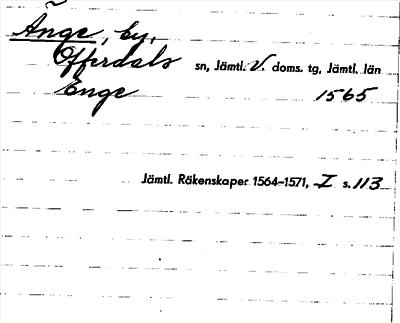 Ånge, by,
Offerdals sn, Jämtl. V. doms. tg, Jämtl. län
Enge 1565
Jämtl. Räkenskaper 1564–1571, I s. 113